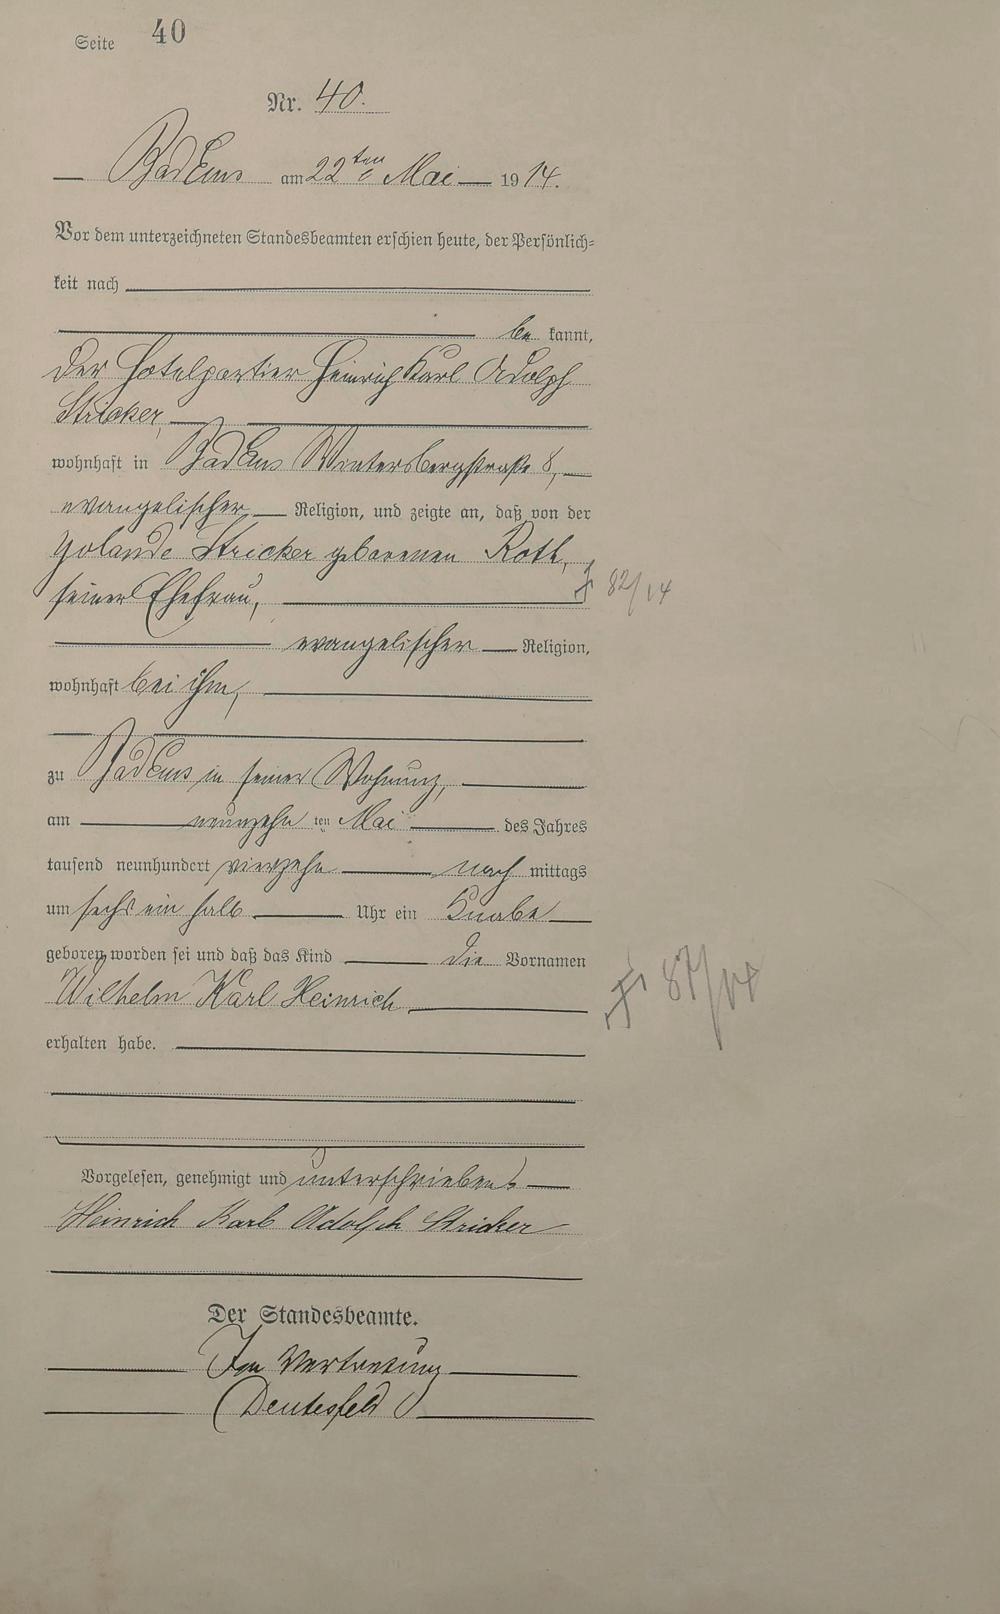 Seite 40
Nr. 40.
Bad Ems am 22ten Mai 1914.
Vor dem unterzeichneten Standesbeamten erschien heute, der Persönlich-
keit nach
be kannt,
der Hotelportier Heinrich Karl Adolph
Stricker,
wohnhaft in Bad Ems Wintersbergstraße 8,
evangelischer Religion, und zeigte an, daß von der
Yolande Stricker geborenen Roth,
seiner Ehefrau, 82/14
evangelischer Religion,
wohnhaft bei ihm,
zu Bad Ems in seiner Wohnung,
am neunzehn ten Mai des Jahres
tausend neunhundert vierzehn nach mittags
um sechs ein halb Uhr ein Knabe
geboren worden sei und daß das Kind die Vornamen
Wilhelm Karl Heinrich 87/14
erhalten habe.
Vorgelesen, genehmigt und unterschrieben
Heinrich Karl Adolph Stricker
Der Standesbeamte.
In Vertretung